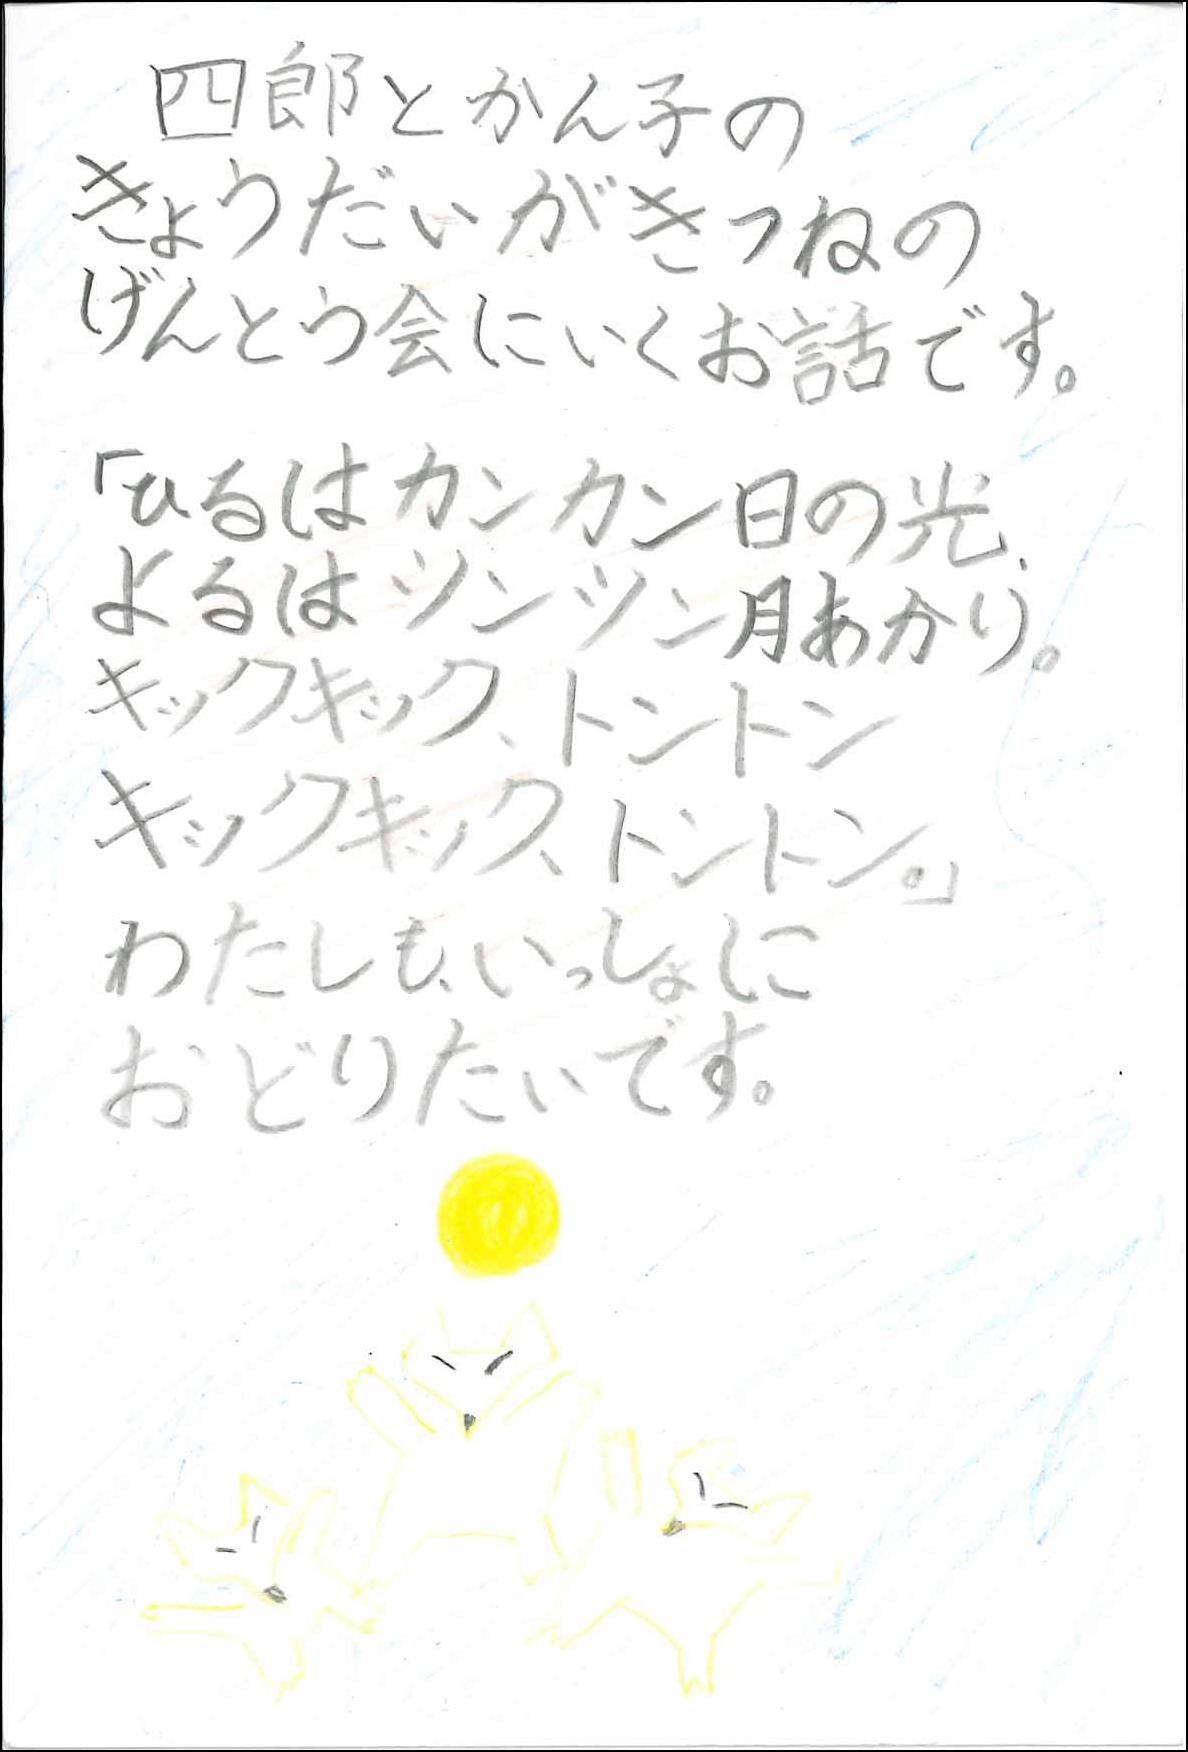 四郎とかん子の
きょうだいがきつねの
げんとう会にいくお話です。
「ひるはカンカン日の光、
よるはツンツン月あかり。
キックキック、トントン
キックキック、トントン。」
わたしも、いっしょに
おどりたいです。